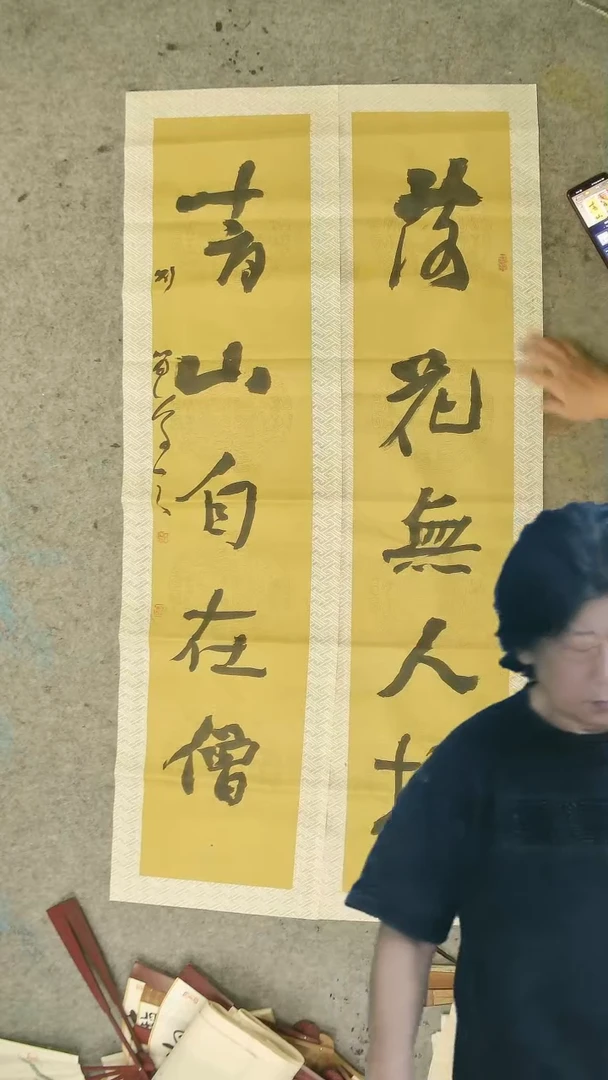 落花無人掃
青山自在僧